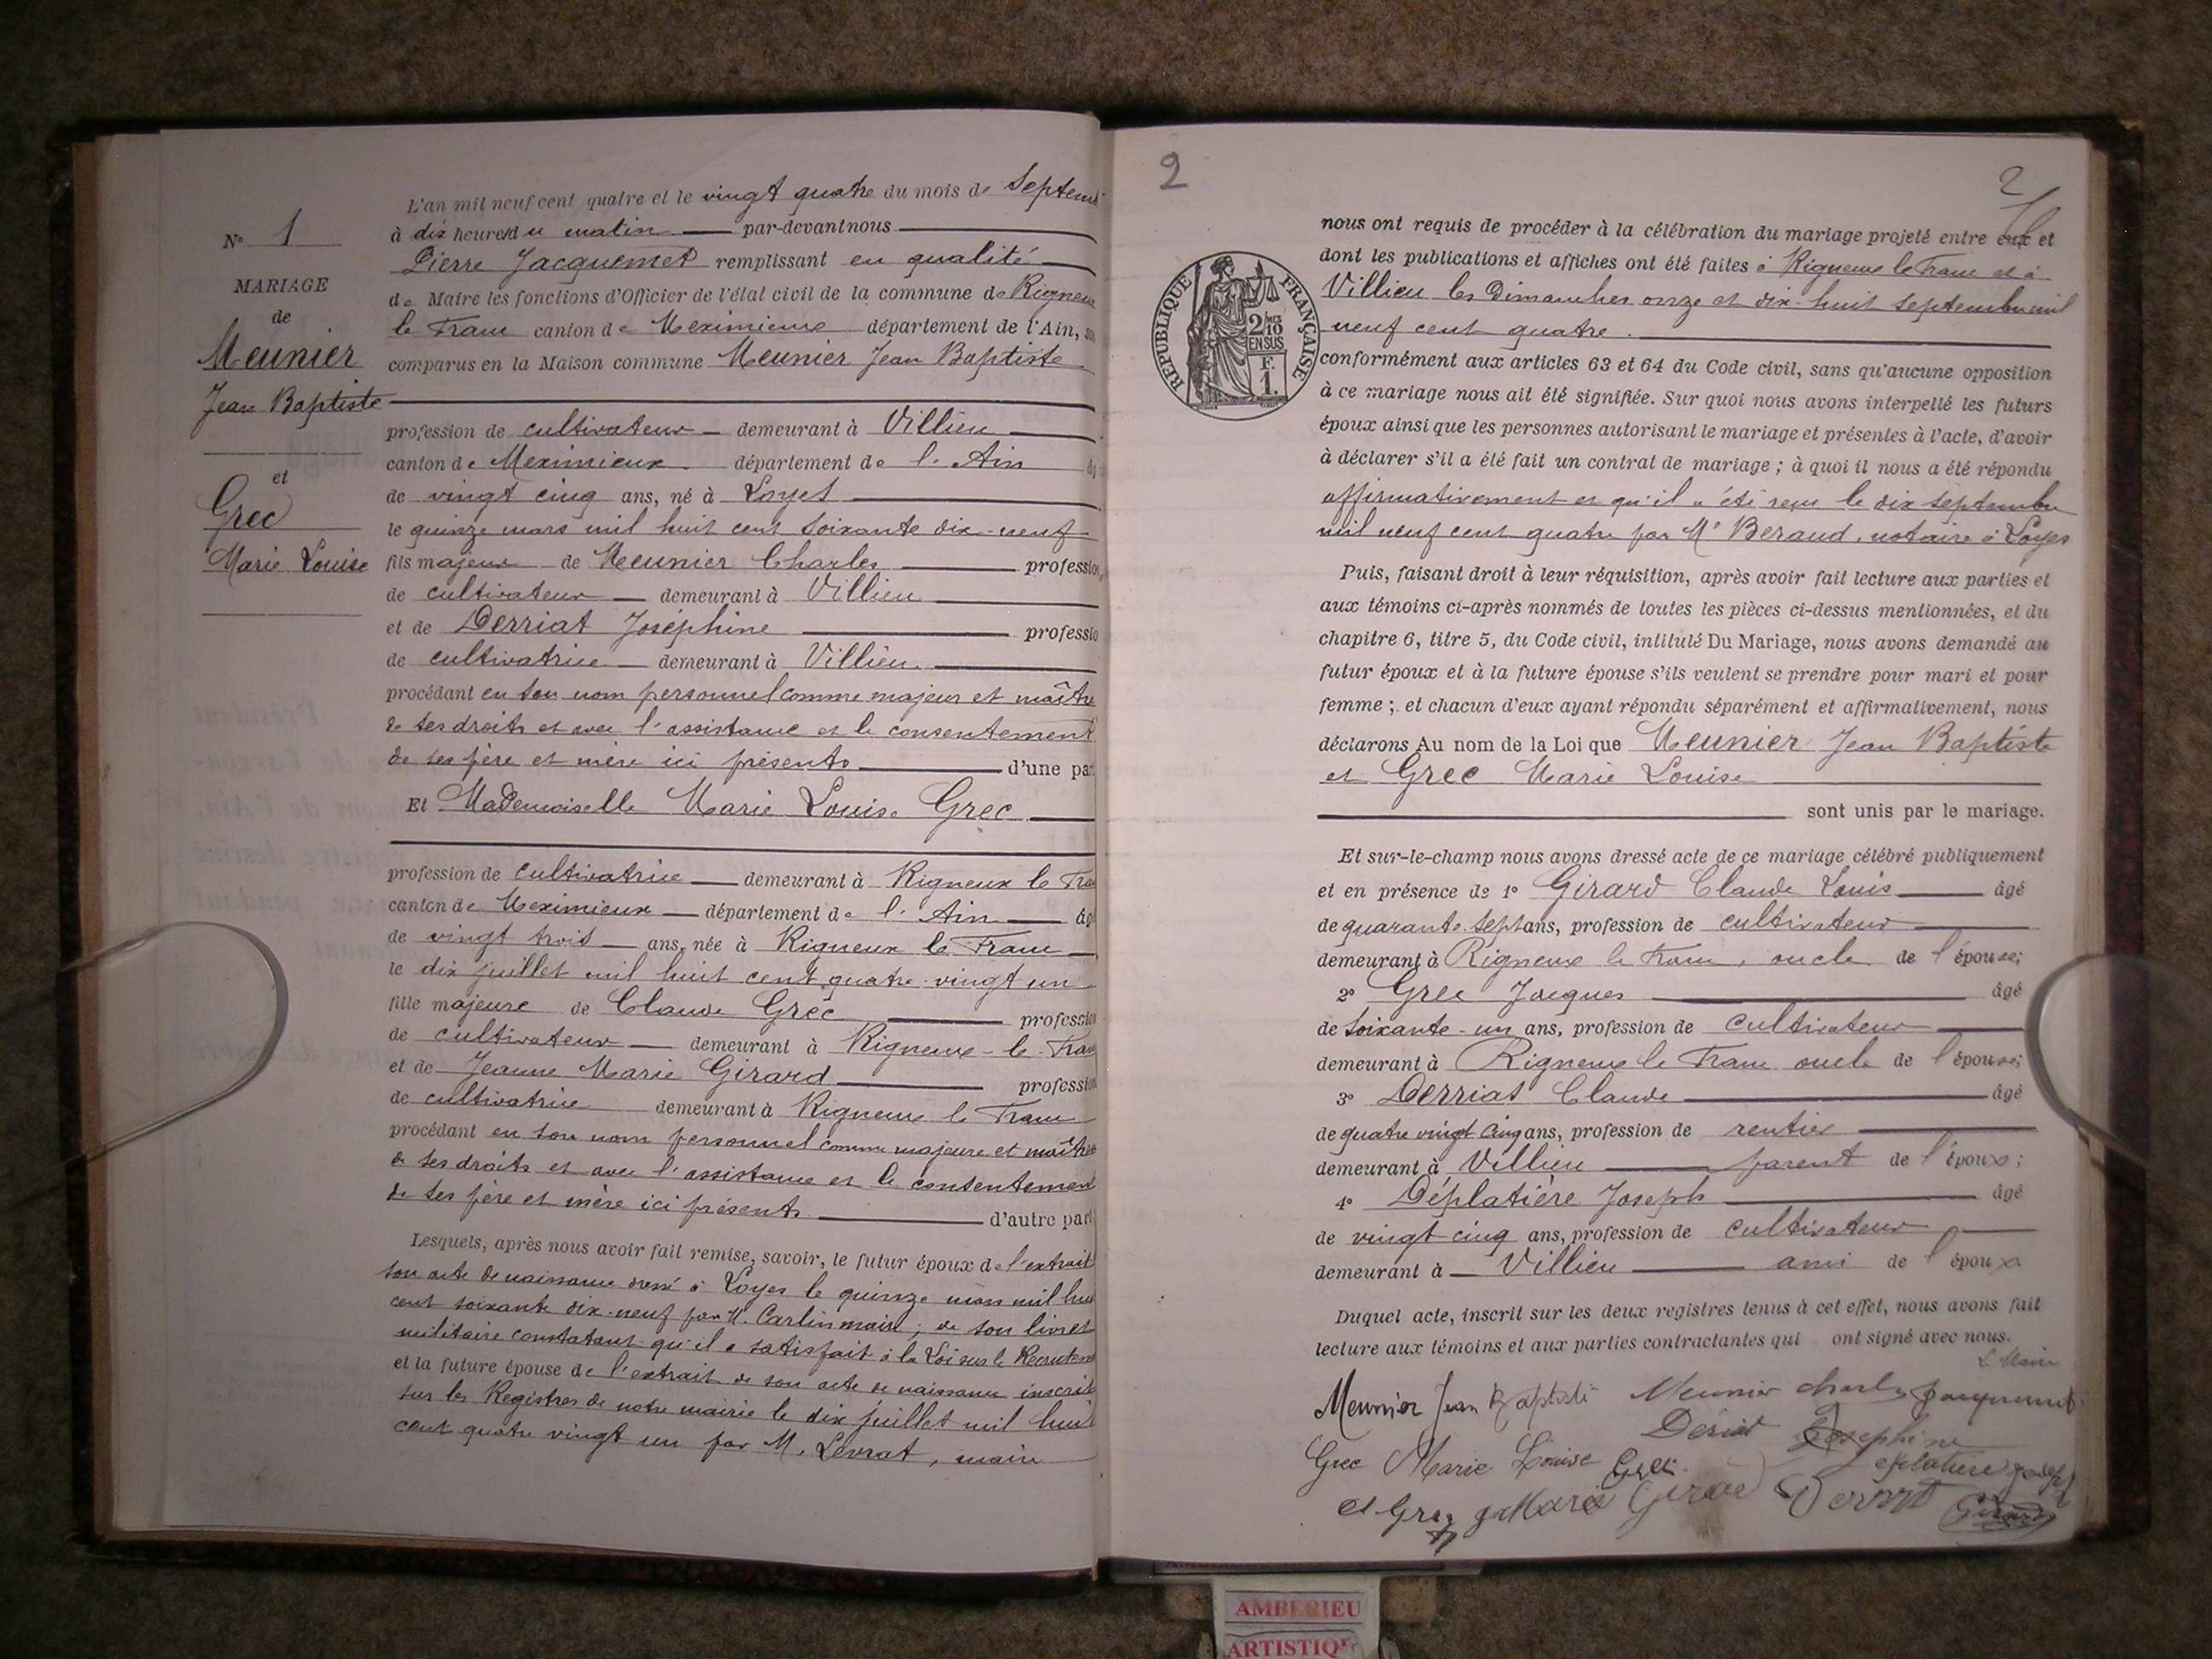 N° 1
MARIAGE
de
Meunier
Jean Baptiste
et
Grec
Marie Louise
L'an mil neuf cent quatre et le vingt quatre du mois de Septem
à dix heures du matin par-devant nous
Pierre Jacquemet remplissant en qualité
de Maire les fonctions d'Officier de l'état civil de la commune de Rigneux
le Franc canton de Meximieux département de l'Ain, so
comparus en la Maison commune Meunier Jean Baptiste
profession de cultivateur demeurant à Villieu
canton de Meximieux département de l'Ain âg
de vingt cinq ans, né à Loyes
le quinze mars mil huit cent soixante dix-neuf
fils majeur de Meunier Charles profession
de cultivateur demeurant à Villieu
et de Derriat Joséphine professio
de cultivatrice demeurant à Villieu
procédant en son nom personnel comme majeur et maître
de ses droits et avec l'assistance et le consentement
de ses père et mère ici présents d'une par
Et Mademoiselle Marie Louise Grec
profession de cultivatrice demeurant à Rigneux le Fra
canton de Meximieux département de l'Ain âg
de vingt trois ans, née à Rigneux le Franc
le dix juillet mil huit cent quatre-vingt un
fille majeure de Claude Grec profession
de cultivateur demeurant à Rigneux-le-Fran
et de Jeanne Marie Girard profession
de cultivatrice demeurant à Rigneux le Franc
procédant en son nom personnel comme majeure et maîtres
de ses droits et avec l'assistance et le consentement
de ses père et mère ici présents d'autre part
Lesquels, après nous avoir fait remise, savoir, le futur époux de l'extrait
son acte de naissance dressé à Loyes le quinze mars mil hui
cent soixante dix-neuf par M. Carlin maire ; de son livret
militaire constatant qu'il a satisfait à la Loi sur le Recrutem
et la future épouse de l'extrait de son acte de naissance inscrit
sur les Registres de notre mairie le dix juillet mil huit
cent quatre vingt un par M. Levrat, maire
2
2
REPUBLIQUE FRANÇAISE
2/10 EN SUS
F. 1.
nous ont requis de procéder à la célébration du mariage projeté entre eux et
dont les publications et affiches ont été faites à Rigneux le Franc et à
Villieu les Dimanches onze et dix-huit septembre mil
neuf cent quatre.
conformément aux articles 63 et 64 du Code civil, sans qu'aucune opposition
à ce mariage nous ait été signifiée. Sur quoi nous avons interpellé les futurs
époux ainsi que les personnes autorisant le mariage et présentes à l'acte, d'avoir
à déclarer s'il a été fait un contrat de mariage ; à quoi il nous a été répondu
affirmativement et qu'il a été reçu le dix septembre
mil neuf cent quatre par Me Beraud, notaire à Loyes
Puis, faisant droit à leur réquisition, après avoir fait lecture aux parties et
aux témoins ci-après nommés de toutes les pièces ci-dessus mentionnées, et du
chapitre 6, titre 5, du Code civil, intitulé Du Mariage, nous avons demandé au
futur époux et à la future épouse s'ils veulent se prendre pour mari et pour
femme ; et chacun d'eux ayant répondu séparément et affirmativement, nous
déclarons Au nom de la Loi que Meunier Jean Baptiste
et Grec Marie Louise
sont unis par le mariage.
Et sur-le-champ nous avons dressé acte de ce mariage célébré publiquement
et en présence de 1° Girard Claude Louis âgé
de quarante sept ans, profession de cultivateur
demeurant à Rigneux le Franc, oncle de l'épouse;
2° Grec Jacques âgé
de soixante-un ans, profession de cultivateur
demeurant à Rigneux le Franc oncle de l'épouse;
3° Derriat Claude âgé
de quatre vingt cinq ans, profession de rentier
demeurant à Villieu parent de l'époux;
4° Déplatière Joseph âgé
de vingt cinq ans, profession de cultivateur
demeurant à Villieu ami de l'époux
Duquel acte, inscrit sur les deux registres tenus à cet effet, nous avons fait
lecture aux témoins et aux parties contractantes qui ont signé avec nous.
Le Maire
Meunier Jean Baptiste Meunier charles Jacquemet
Dériat Josephine
Grec Marie Louise Grec
Girard
AMBERIEU
ARTISTIQ